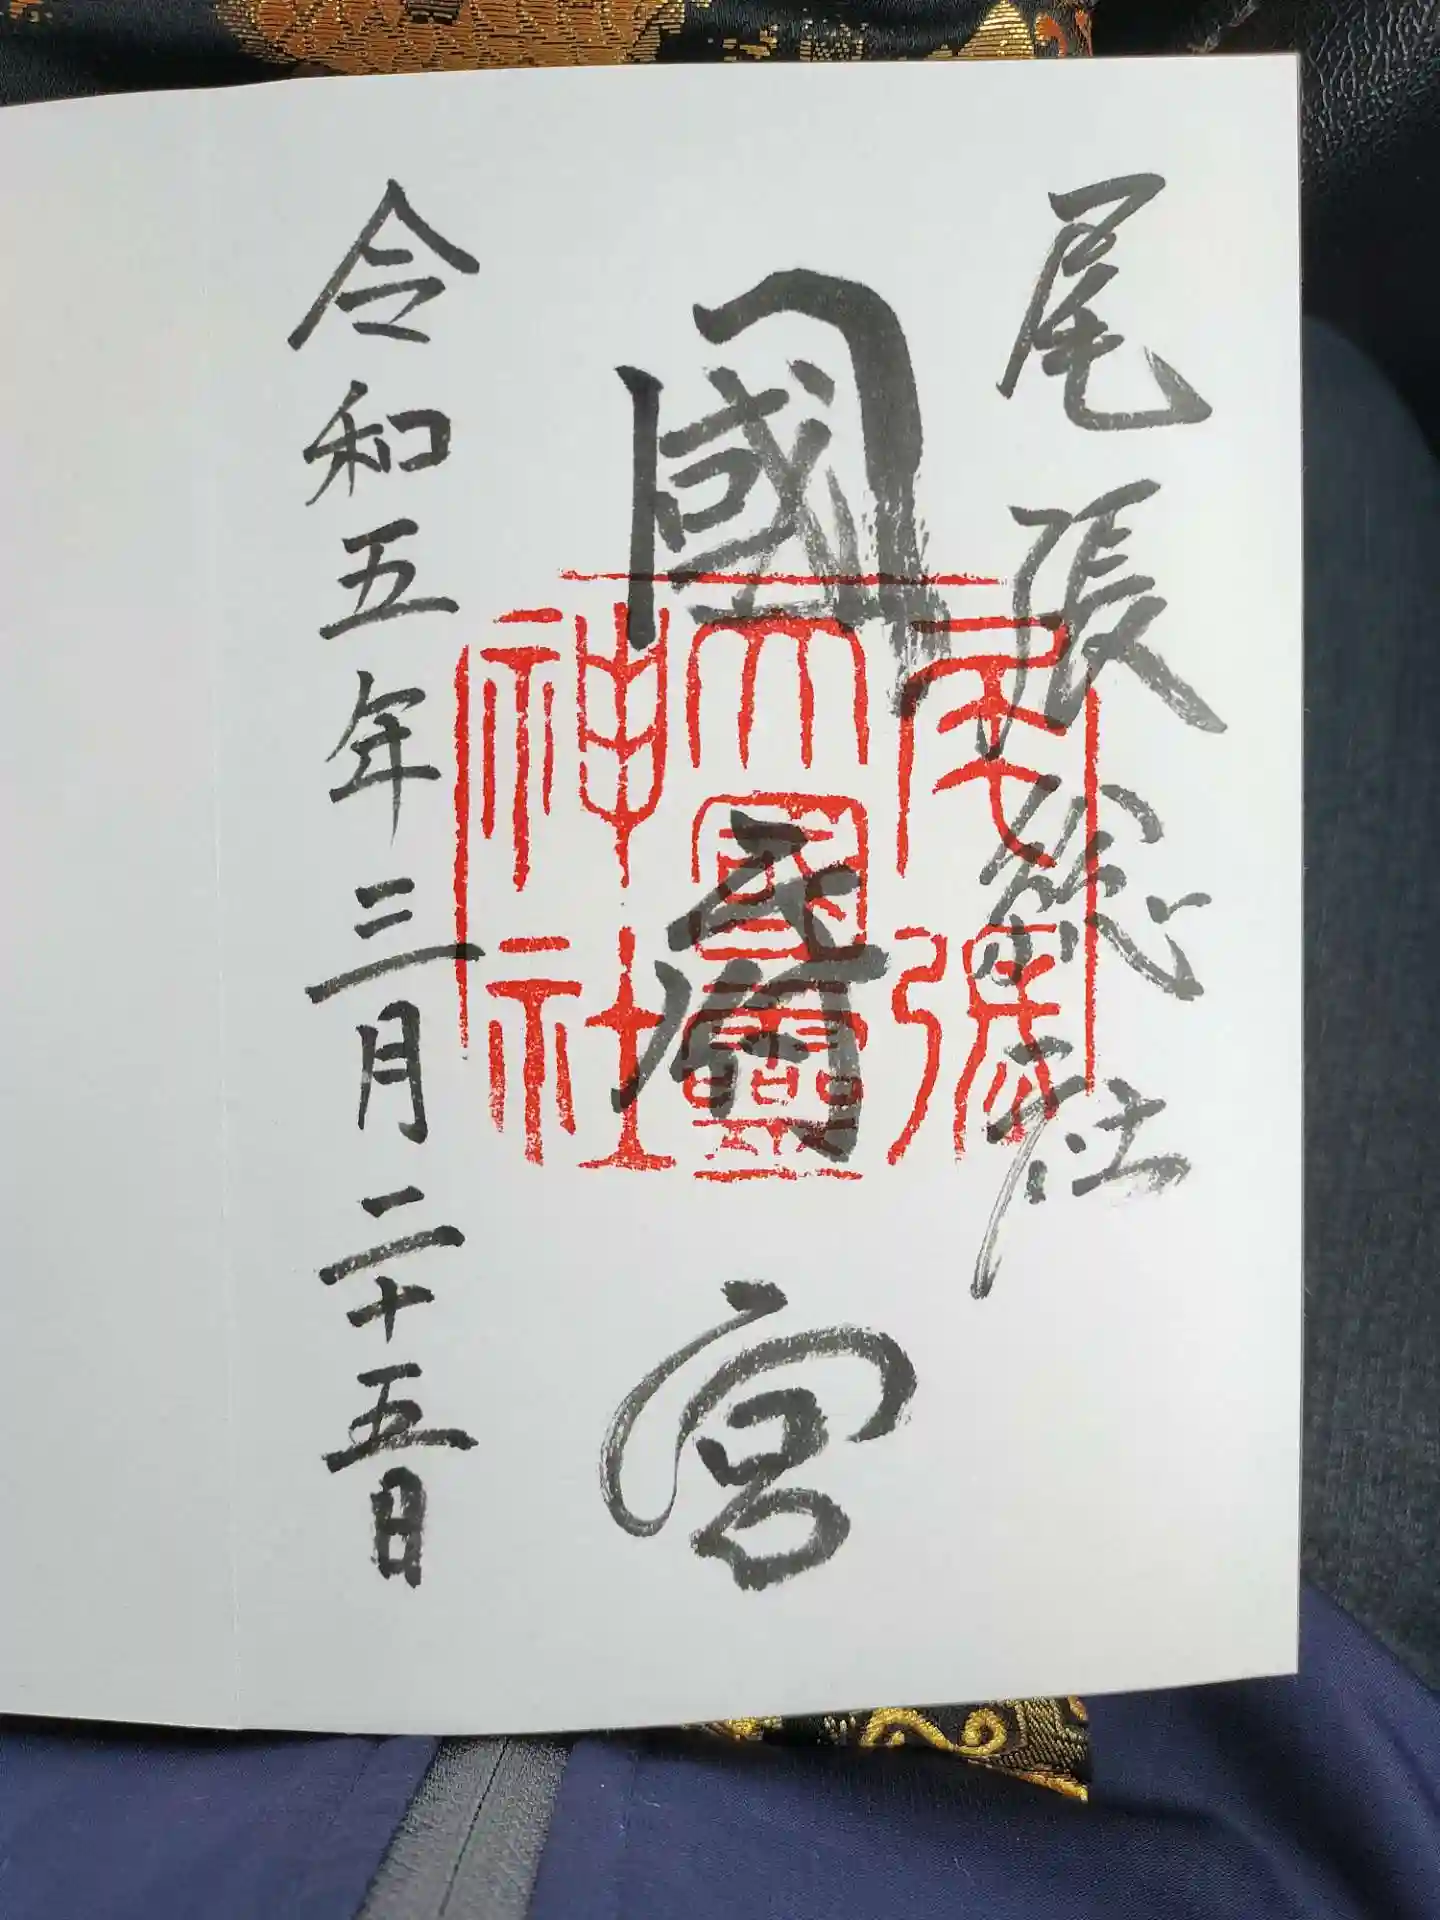 尾張総社
國府宮
尾張
大國霊
神社
令和五年三月二十五日